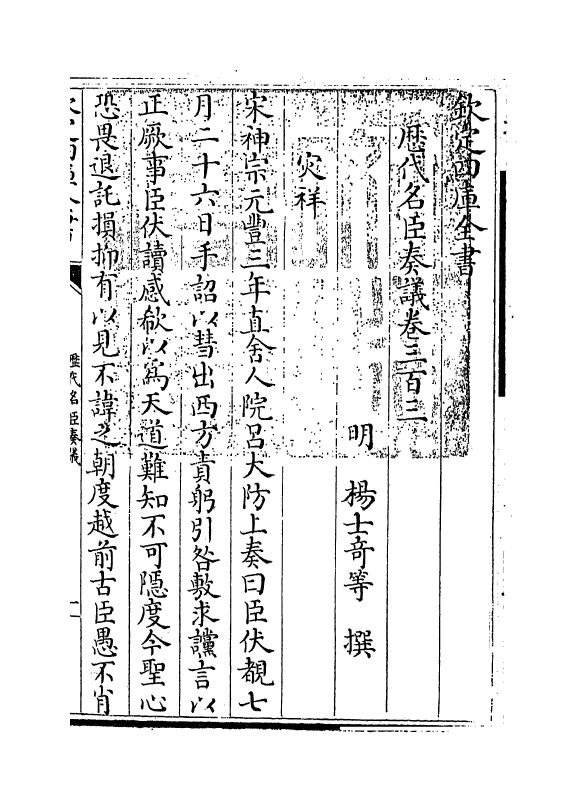 欽定四庫全書
歷代名臣奏議卷三百三
明 楊士奇等 撰
灾祥
宋神宗元豐三年直舍人院呂大防上奏曰臣伏覩七
月二十六日手詔以彗出西方責躬引咎敷求讜言以
正厥事臣伏讀感欷以爲天道難知不可隱度今聖心
恐畏退託損抑有以見不諱之朝度越前古臣愚不肖
歷代名臣奏議
一